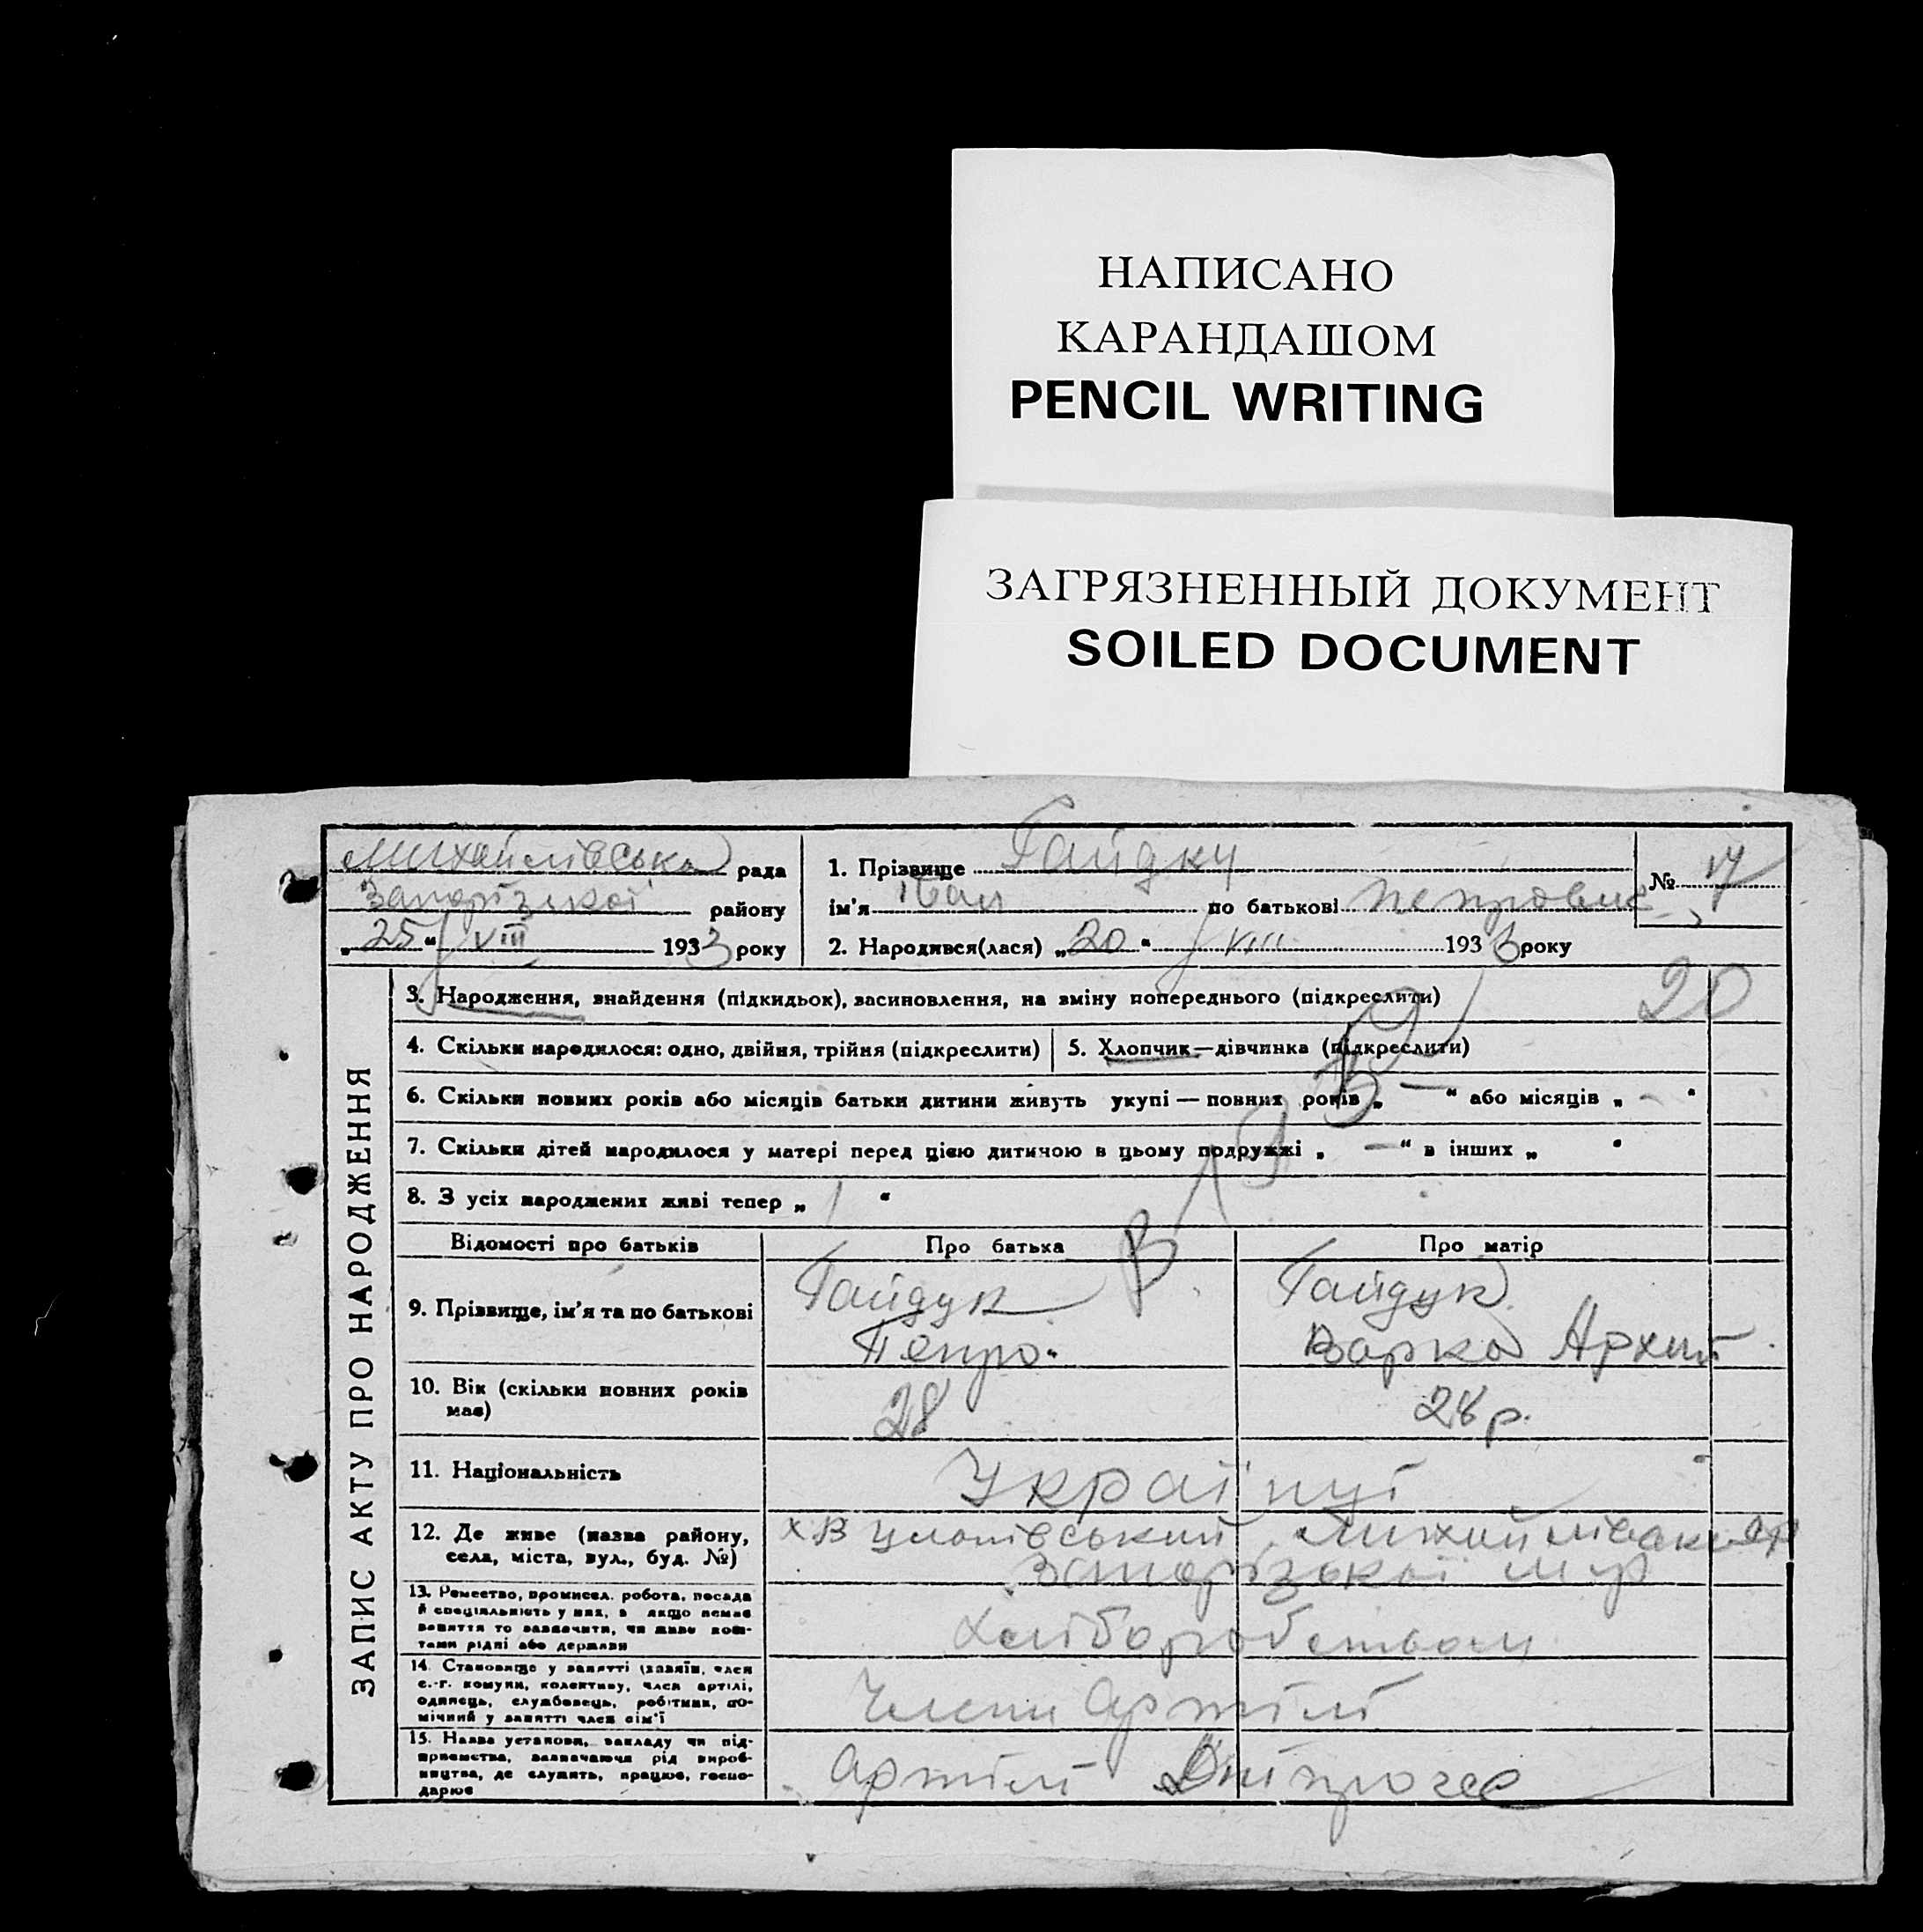 НАПИСАНО
КАРАНДАШОМ
PENCIL WRITING
ЗАГРЯЗНЕННЫЙ ДОКУМЕНТ
SOILED DOCUMENT
ЗАПИС АКТУ ПРО НАРОДЖЕННЯ
Михайлівська рада
Запорізької району
„25“ VIII 1933 року
1. Прізвище Гайдку
ім’я Іван по батькові Петрович
№ 17
2. Народився(лася) „20“ VIII 1933 року
3. Народження, знайдення (підкидьок), засиновлення, на зміну попереднього (підкреслити)
20
4. Скільки народилося: одно, двійня, трійня (підкреслити)
5. Хлопчик—дівчинка (підкреслити)
6. Скільки повних років або місяців батьки дитини живуть укупі — повних років „ — “ або місяців „ - “
7. Скільки дітей народилося у матері перед цією дитиною в цьому подружжі „ — “ в інших „ “
8. З усіх народжених живі тепер „ 1 “
Відомості про батьків
Про батька
Про матір
9. Прізвище, ім’я та по батькові
Гайдук
Петро.
Гайдук
Варка Архип
10. Вік (скільки повних років
має)
28
28 р.
11. Національність
Україпці
12. Де живе (назва району,
села, міста, вул., буд. №)
Запорізької м р
13. Ремество, промисел, робота, посада
й спеціяльність у них, а якщо немає
заняття то зазначити, чи живе кош-
тами рідні або держави
Хліборобством
14. Становище у занятті (хазяїн, член
с.-г. комуни, колективу, член артілі,
одинець, службовець, робітник, по-
мічний у занятті член сім’ї
Члени Артілі
15. Назва установи, закладу чи під-
приємства, зазначаючи рід вироб-
ництва, де служить, працює, госпо-
дарює
Артілі Дніпрогес